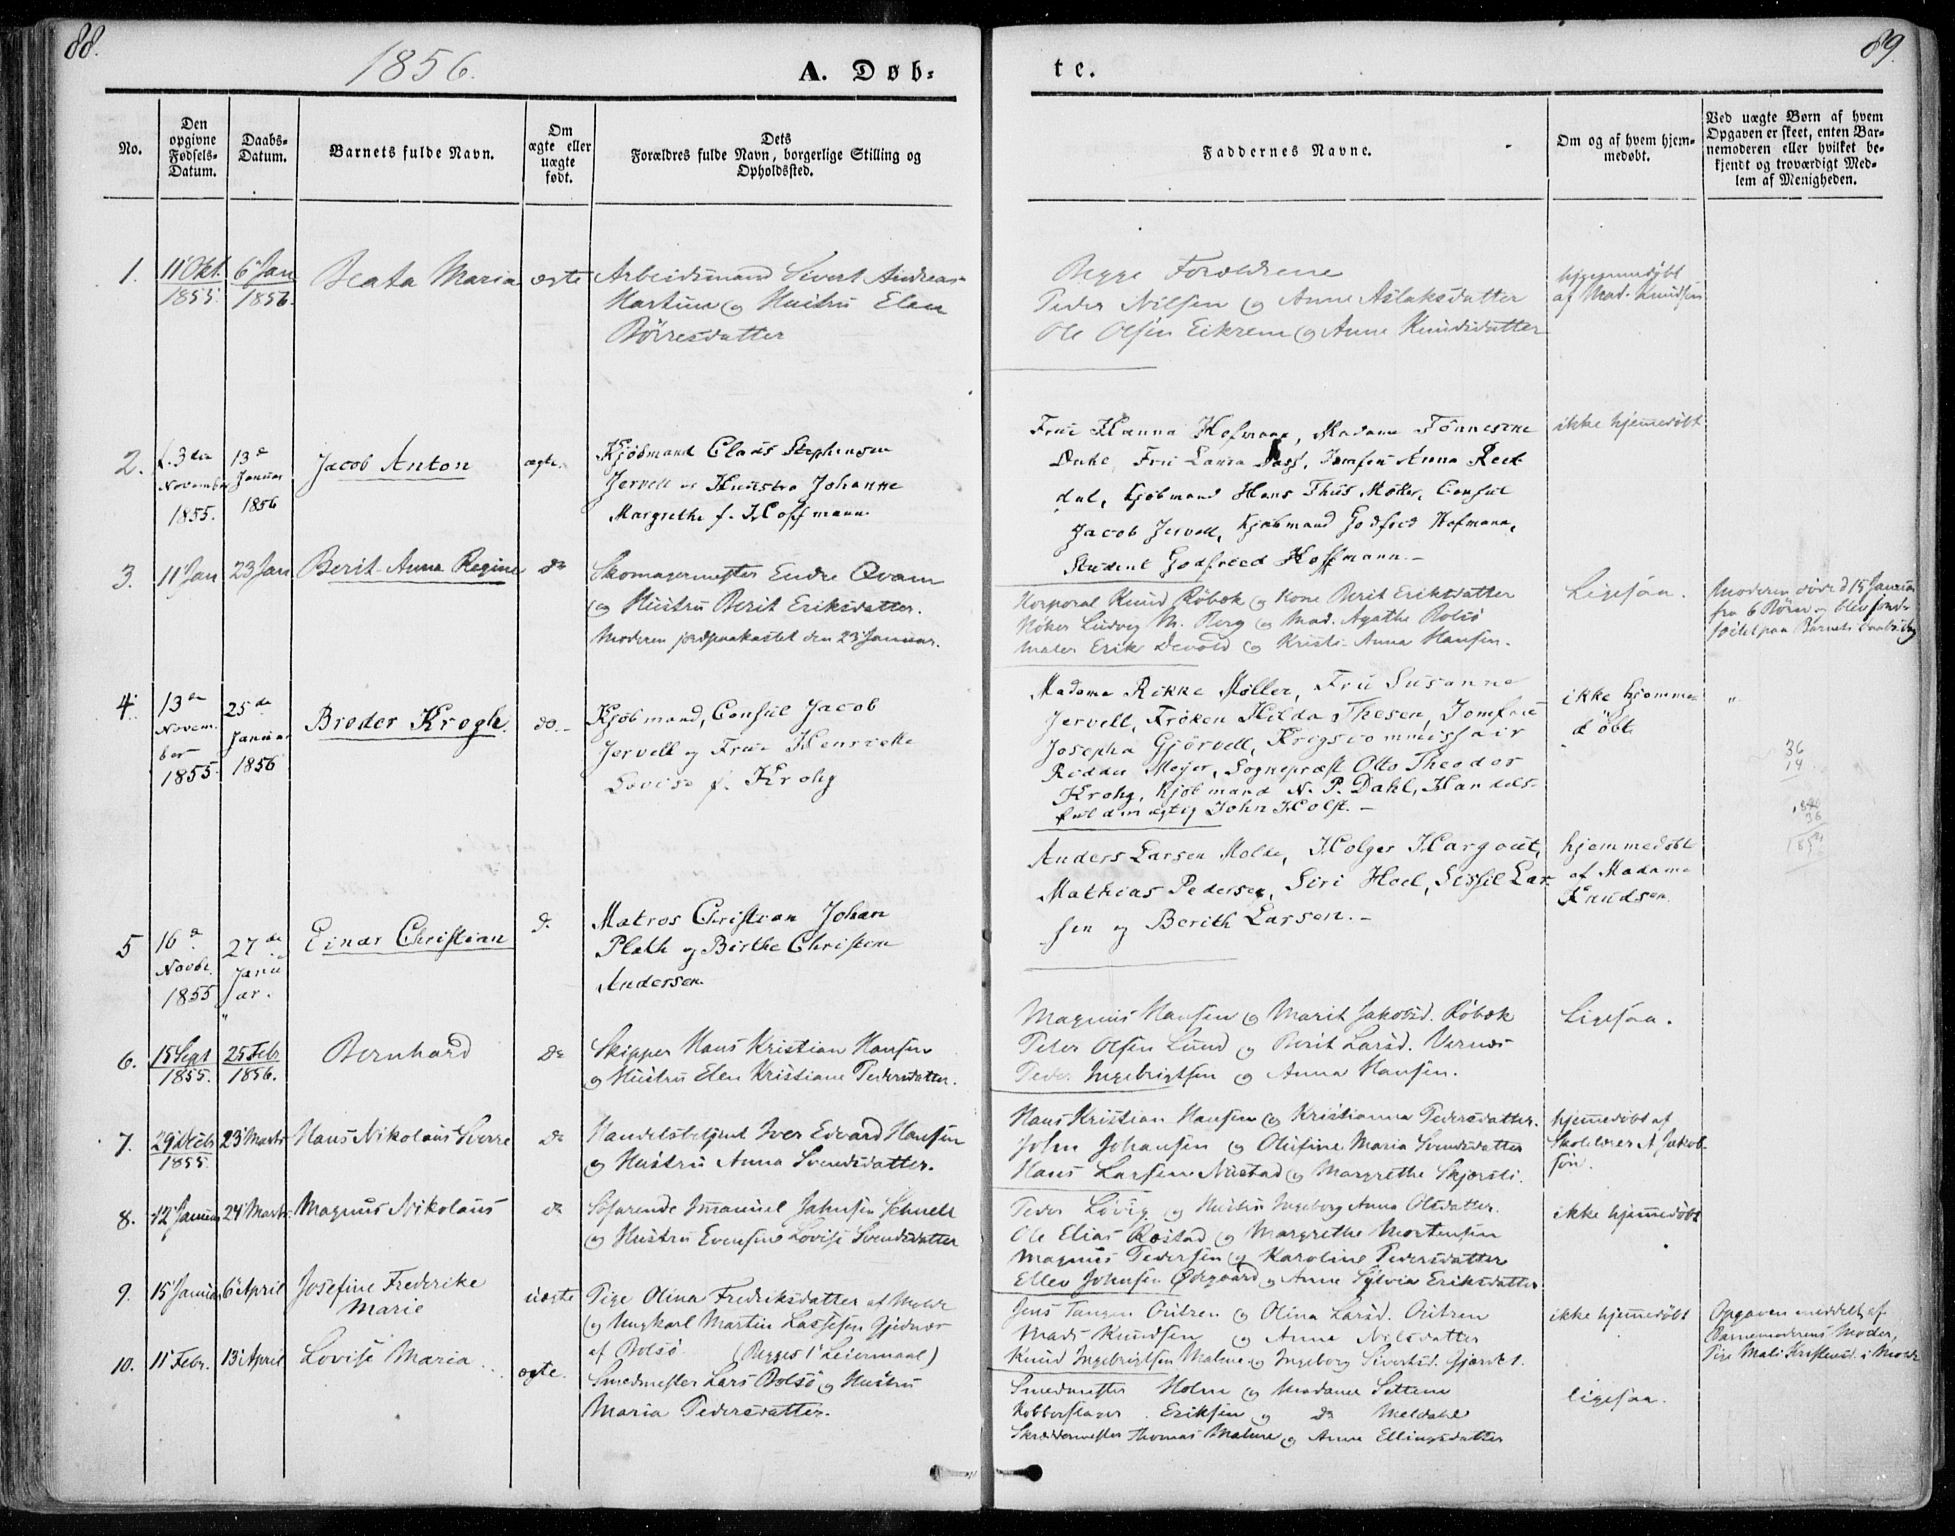 88.
1856.
A. Døb-
te.
89.
No.
Den
opgivne
Fødsels-
Datum.
Daabs-
Datum.
Barnets fulde Navn.
Om
ægte eller
uægte
født.
Dets
Forældres fulde Navn, borgerlige Stilling og
Opholdssted.
Faddernes Navne.
Om og af hvem hjem-
medøbt.
Ved uægte Børn af hvem
Opgaven er skeet, enten Bar-
nemoderen eller hvilket be-
kjendt og troværdigt Med-
lem af Menigheden.
1.
11 Okt.
1855.
6 Jan
1856.
Beata Maria
ægte
Arbeidsmand Sivert Andreas
og Hustru Elen
Børresdatter
Begge Forældrene
Peder Nilsen og Anne Aslaksdatter
Ole Olsen Eikrem og Anne Knudsdatter
hjemmedøbt
af Mad. Knudsen
2.
f. 3die
November
1855.
13de
Januar
1856
Jacob Anton
ægte.
Kjøbmand Claus Stephensen
Jervell og Huustro Johanne
Margrethe f. Hoffmann.
Frue Hanna Hofmann, Madame Tønnesine
Dahl, Fru Laura Dass, Jomfru Anna
Kjøbmand Hans Thiis Møller, Consul
Jacob Jervell, Kjøbmand Godfred Hofmann,
Student Godfred Hoffmann.-
ikke hjemmedøbt
3.
11 Jan
23 Jan
Berit Anna Regine
do
Skomagermester Endre Qvam
og Hustru Berit Eriksdatter.
Moderen jordpaakastet den 23 Januar.
Korporal Knud Røbek og Kone Berit Eriksdatter
Ludvig M. Berg og Mad. Agathe Bolsø
Maler Erik Devold og Anna Hansen.
Ligesaa.
Moderen døde d 15 Januar
fra 6 Børn og blev jord-
fæstet paa Barnets daabsdag
4.
13de
Novem-
ber
1855.
25de
Januar
1856
Broder Krogh.
do.-
Kjøbmand, Consul Jacob
Jervell og Frue Henriette
Lovise f. Krohg
Madame Rikke Møller, Fru Susanne
Jervell, Frøken Hilda Thesen, Jomfru
Josepha Gjörvell, Krigscommissair
Ridder Mejer, Sognepræst Otto Theodor
Krohg, Kjøbmand N. P. Dahl, Handels-
fuldmægtig John Holst.-
ikke hjemme-
døbt
"
36
14
36
5
16de
Novbr.
1855
27de
Janu
ar.
Einar Christian
do
Matros Christian Johan
Plath og Birthe Christine
Andersen.
Anders Larsen Molde, Holger Hargout,
Mathias Pedersen, Siri Hoel, Sissil Lar-
sen og Berith Larsen.-
hjemmedøbt
af Madame
Knudsen
6.
15 Sept
1855.
25 Feb
1856.
Bernhard
do
Skipper Hans Kristian Hansen
og Hustru Elen Kristiane Pedersdatter.
Magnus Hansen og Marit Jakobsd. Røbek
Peter Olsen Lund og Berit Larsd. Varnes
Peder Ingebrigtsen og Anna Hansen.
Ligesaa.
7.
29 Decb
1855.
23 Marts
Hans Nikolaus Sverre
do
Handelsbetjent Iver Edvard Hansen
og Hustru Anna Svendsdatter.
Hans Kristian Hansen og Kristianna Pedersdatter.
John Johansen og Olufine Maria Svendsdatter
Hans Larsen Nustad og Margrethe Skjørsli.
hjemmedøbt af
Skolelærer A Jakob-
søn.
8.
12 Januar
24 Marts
Magnus Nikolaus
do
Søfarende Imanuel Jahnsen Schnell
og Hustru Evensine Lovise Svendsdatter
Peder Løvig og Hustru Ingeborg Anna Olsdatter.
Ole Elias Røstad og Margrethe Mortensen
Magnus Pedersen og Karoline Pedersdatter
Ellev Johnsen Ørgaard og Anne Sylvia Eriksdatter
ikke hjemmedøbt
9.
15 Januar
6 April
Josefine Frederike
Marie
uægte
Pige Olina Fredriksdatter af Molde
og Ungkarl Martin Lassesen Gjednæs
af Bolsø. (Begges 1 Leiermaal)
Jens Tangen Oritzen og Olina Larsd. Oritzen
Mads Knudsen og Anna Nilsdatter
Knud Ingebrigtsen Malme og Ingeborg Sivertsd.
ikke hjemmedøbt
Opgaven meddelt af
Barnemoderens Moder,
Pige Mali Kristensd. i Molde
10.
11 Febr.
13 April
Lovise Maria
ægte.
Smedmester Lars Bolsø og Hustru
Maria Pedersdatter.
Smedmester Holm og Madame Settem
Kobberslager Eriksen og do Meldahl
Skreddermester Thomas Malme og Anne Ellingsdatter
ligesaa.